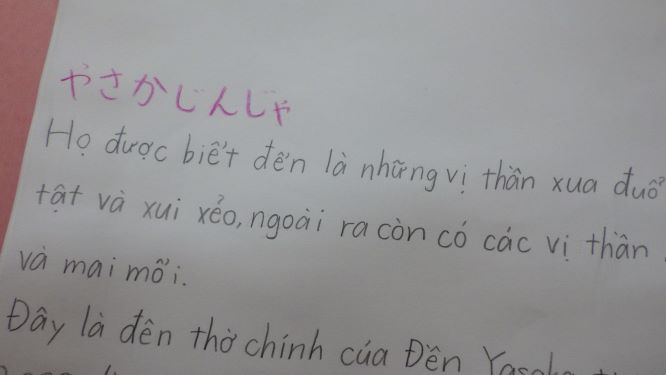 やさかじんじゃ
Họ được biết đến là những vị thần xua đuổ
tật và xui xẻo, ngoài ra còn có các vị thần
và mai mối.
Đây là đền thờ chính của Đền Yasaka